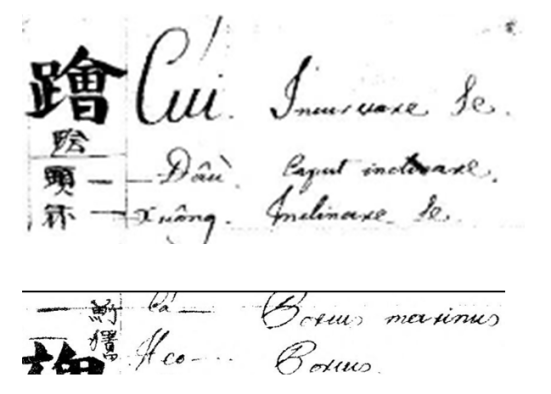 Cúi. Incurvare Se.
頭 — — Đầu. Caput inclinare.
— Xuông. Inclinare Se.
— Cá — Porcus marinus
— Heo — Porcus.